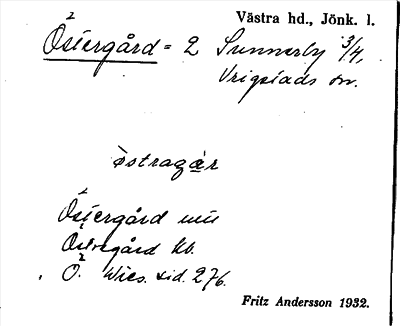 Västra hd., Jönk. l.
Östergård = 2 Sunnerby 3/4,
Vrigstads sn.
östragár
Östergård
Östregård kb.
Ö. Wies. sid. 276.
Fritz Andersson 1932.